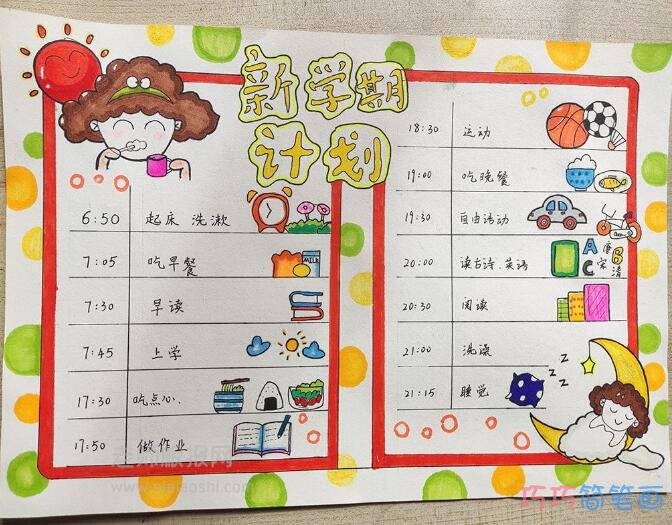 新学期
计划
6:50 起床 洗漱
7:05 吃早餐
MILK
7:30 早读
7:45 上学
17:30 吃点心
17:50 做作业
18:30 运动
19:00 吃晚餐
19:30 自由活动
20:00 读古诗、英语
A B C
唐 宋 清
20:30 阅读
21:00 洗澡
21:15 睡觉
z z z
z z z
巧巧简笔画